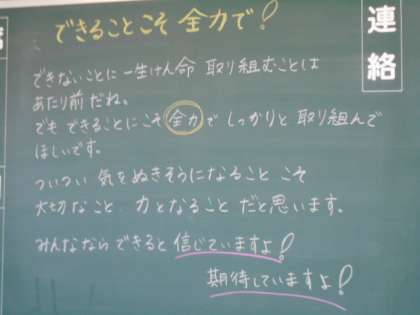 できることこそ 全力で!
連絡
できないことに一生けん命 取り組むことは
あたり前だね。
でも できることにこそ 全力で しっかりと 取り組んで
ほしいです。
ついつい 気をぬきそうになること こそ
大切なこと 力となること だと思います。
みんなならできると 信じていますよ!
期待していますよ!